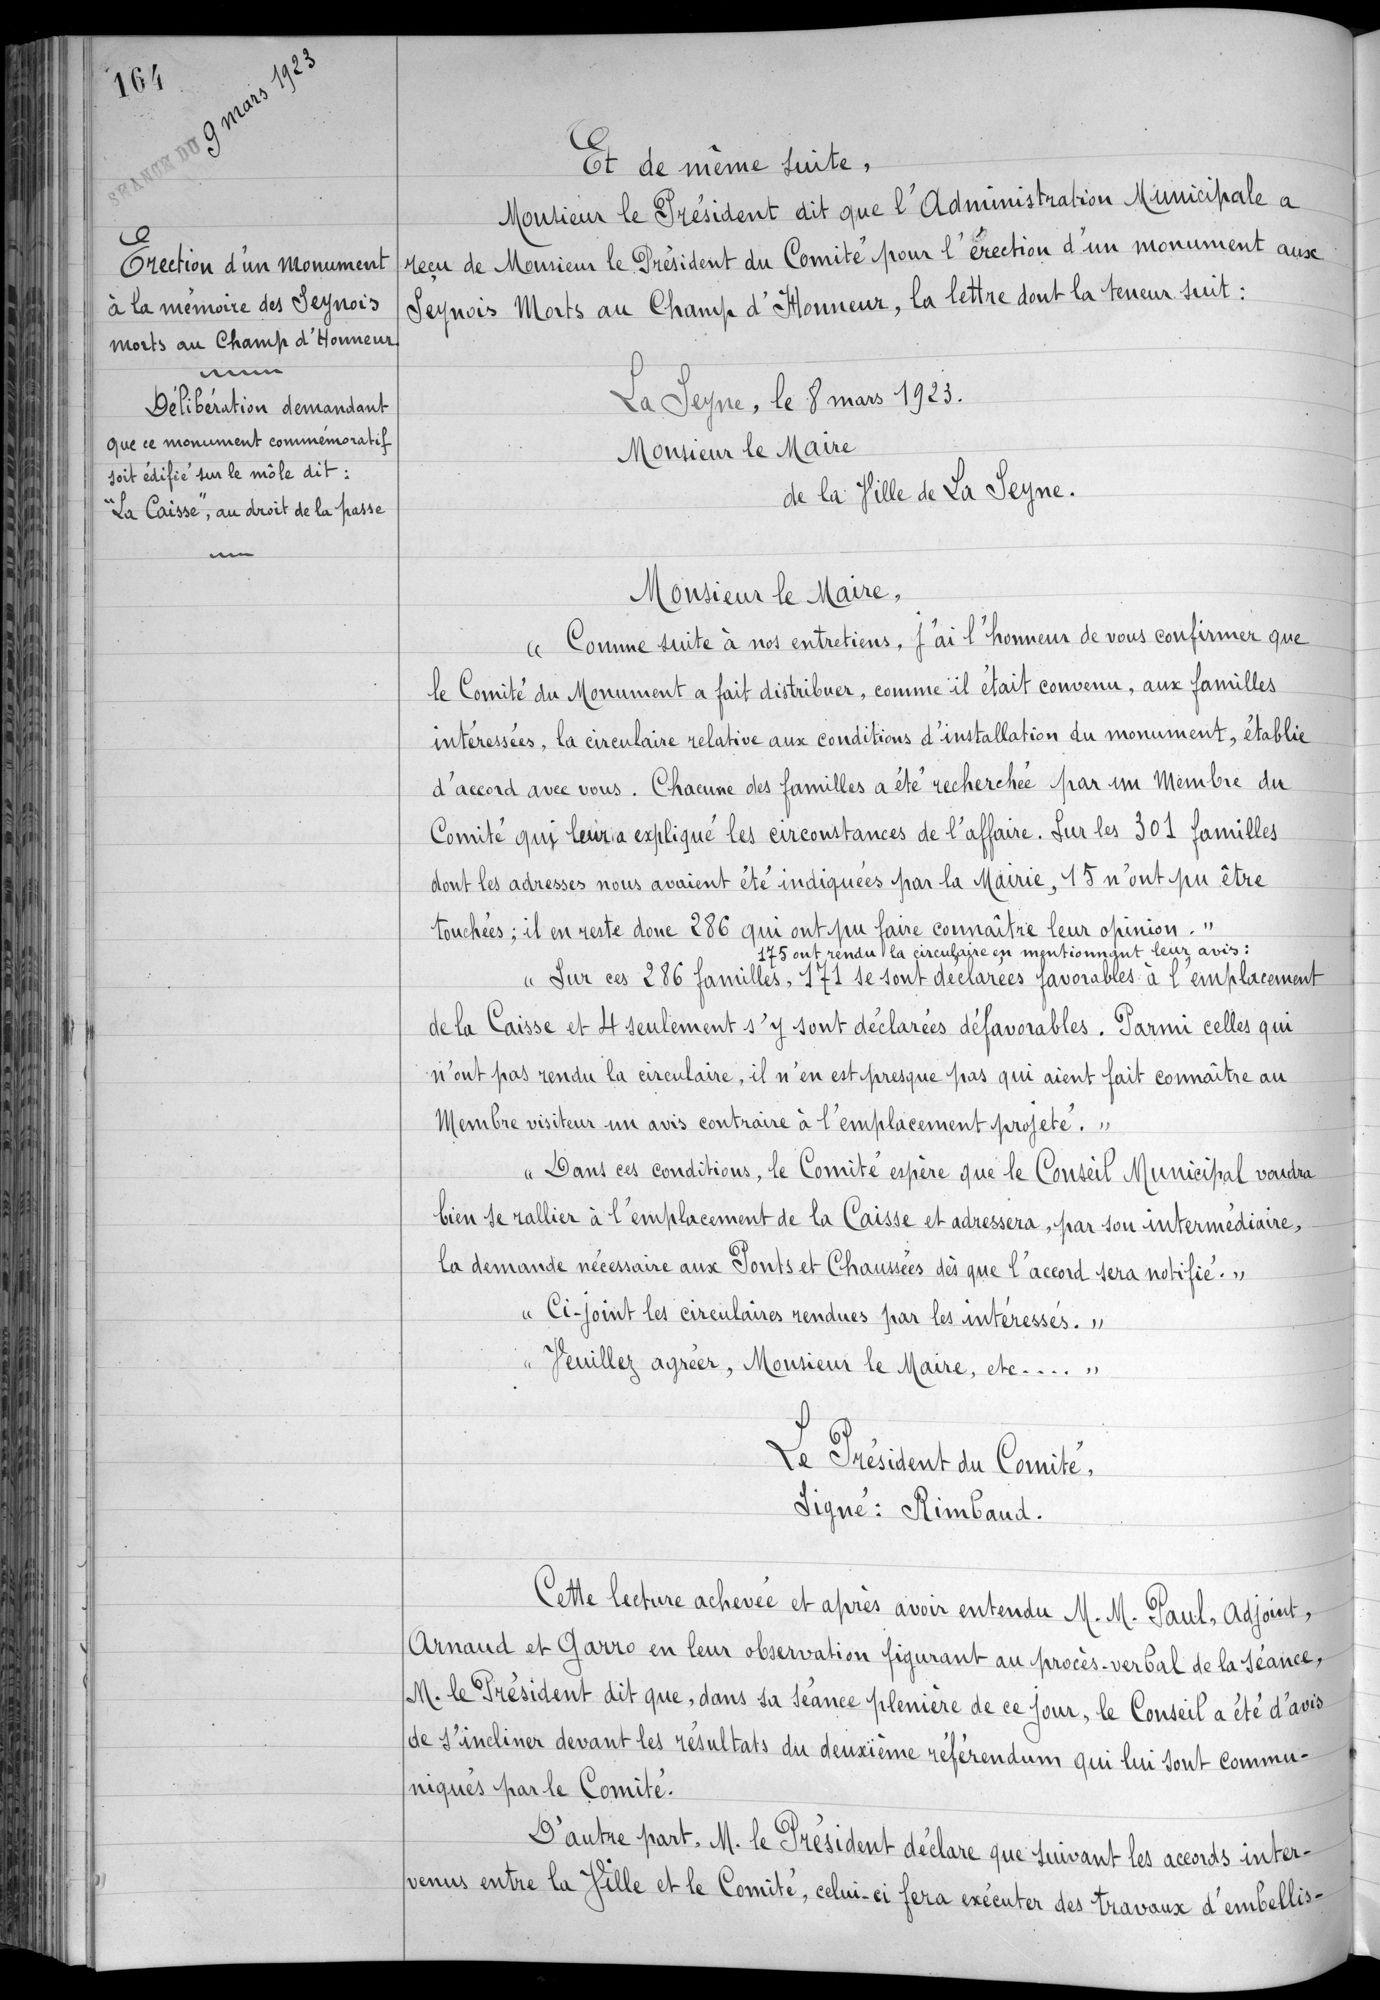 164
SEANCE DU 9 mars 1923
Erection d'un monument
à la mémoire des Seynois
morts au Champ d'Honneur
Délibération demandant
que ce monument commémoratif
soit édifié sur le môle dit :
"La Caisse", au droit de la passe
Et de même suite,
Monsieur le Président dit que l'Administration Municipale a
reçu de Monsieur le Président du Comité pour l'érection d'un monument aux
Seynois Morts au Champ d'Honneur, la lettre dont la teneur suit :
La Seyne, le 8 mars 1923.
Monsieur le Maire
de la Ville de La Seyne.
Monsieur le Maire,
" Comme suite à nos entretiens, j'ai l'honneur de vous confirmer que
le Comité du Monument a fait distribuer, comme il était convenu, aux familles
intéressées, la circulaire relative aux conditions d'installation du monument, établie
d'accord avec vous. Chacune des familles a été recherchée par un Membre du
Comité qui leur a expliqué les circonstances de l'affaire. Sur les 301 familles
dont les adresses nous avaient été indiquées par la Mairie, 15 n'ont pu être
touchées ; il en reste donc 286 qui ont pu faire connaître leur opinion. "
175 ont rendu la circulaire en mentionnant leur avis :
" Sur ces 286 familles, 171 se sont déclarées favorables à l'emplacement
de la Caisse et 4 seulement s'y sont déclarées défavorables. Parmi celles qui
n'ont pas rendu la circulaire, il n'en est presque pas qui aient fait connaître au
Membre visiteur un avis contraire à l'emplacement projeté. "
" Dans ces conditions, le Comité espère que le Conseil Municipal voudra
bien se rallier à l'emplacement de la Caisse et adressera, par son intermédiaire,
la demande nécessaire aux Ponts et Chaussées dès que l'accord sera notifié. "
" Ci-joint les circulaires rendues par les intéressés. "
" Veuillez agréer, Monsieur le Maire, etc.... "
Le Président du Comité,
Signé : Rimbaud.
Cette lecture achevée et après avoir entendu M. M. Paul, Adjoint,
Arnaud et Garro en leur observation figurant au procès-verbal de la séance,
M. le Président dit que, dans sa séance plenière de ce jour, le Conseil a été d'avis
de s'incliner devant les résultats du deuxième référendum qui lui sont commu-
niqués par le Comité.
D'autre part, M. le Président déclare que suivant les accords inter-
venus entre la Ville et le Comité, celui-ci fera exécuter des travaux d'embellis-